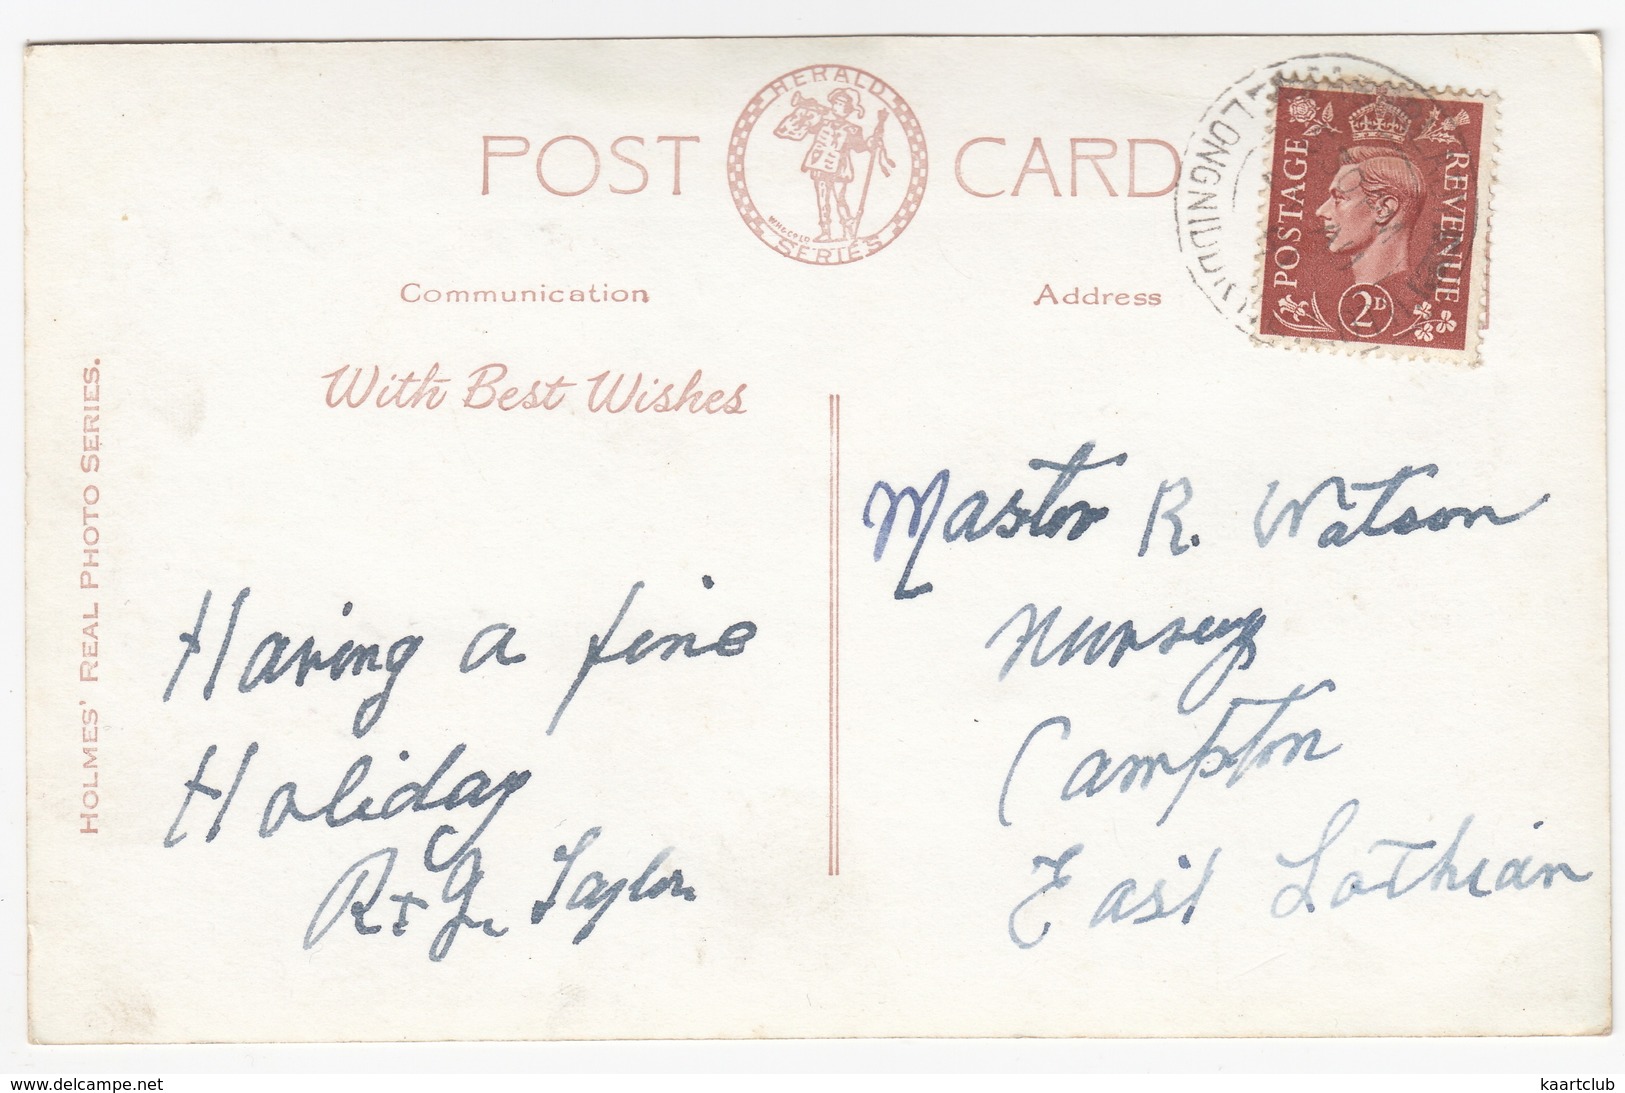 POST CARD
HERALD
SERIES
W.H.& CO LD
Communication
Address
With Best Wishes
HOLMES' REAL PHOTO SERIES.
LONGNIDDRY
POSTAGE
REVENUE
2D
Having a fine
Holiday
R + J. Taylor
Master R. Watson
Nursery
Campton
East Lothian
www.delcampe.net
kaartclub